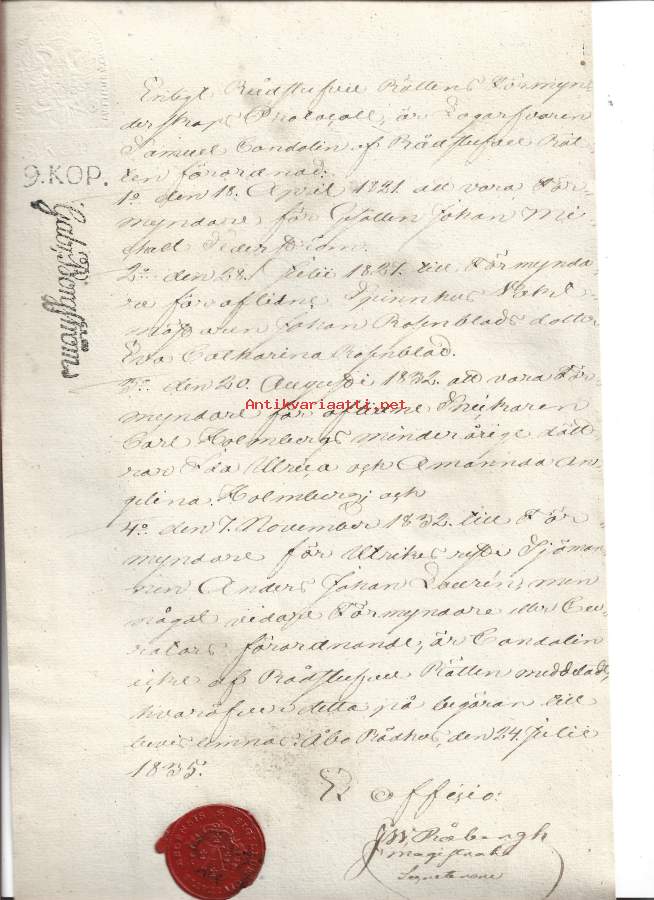 Enligt Rådstufvu Rättens Förmyn
derskaps Protocoll, är Logarfvaren
Samuel Candolin af Rådstufvu Rät
ten förordnad:
1o den 18. April 1821. att vara För-
myndare för Johan Mi-
chall
2o den 28. Julii 1827. till Förmynda-
re för aflidne Spinnhus
Johan Rosenblads dotter
Eva Catharina Rosenblad.
3o den 20. Augusti 1832. att vara För-
myndare för aflidne Snickaren
Carl Holmbergs minderårige dött
rar Ulrica och Amannda An-
gelina Holmberg; och
4o den 7. November 1832. till För-
myndare för Utrikes reste Sjöman
nen Anders Johan Laurén; men
något vidare Förmyndare eller Cu-
rators förordnande, är Candolin
icke af Rådstufvu Rätten meddeladt,
hvaröfver detta på begäran till
bevis lemnas. Åbo Rådhus, den 24 Julii
1835.
Ex officio:
Magistrats
Secreterare
9.KOP.
Antikvariaatti.net